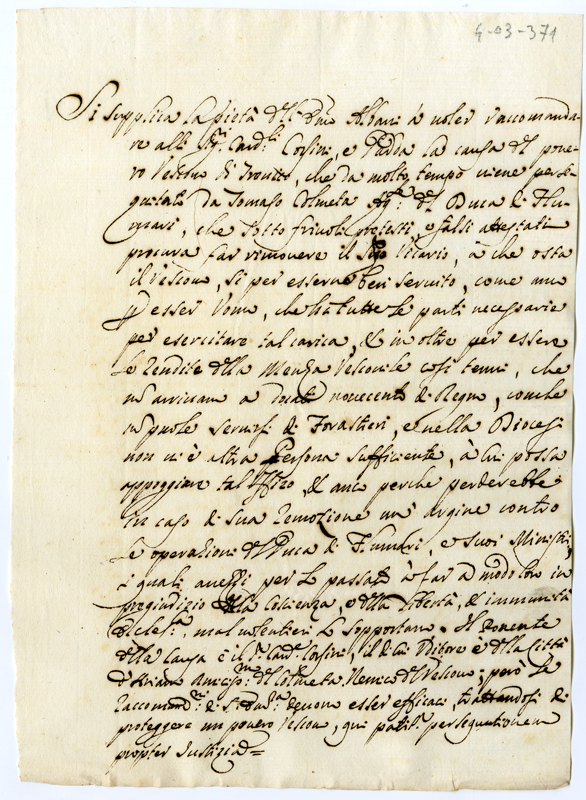 4-03-371
Si supplica la pietà dell' Emo Albani à voler raccomanda-
re alli Sigri Cardli Corsini, e Padda la causa del pove-
ro Vescovo di Trevico, che da molto tempo viene perse-
guitato da Tomaso Colmeta Agte del Duca di Flu-
mari, che sotto frivoli pretesti, e falsi attestati
procura far rimovere il suo Vicario, à che osta
il Vescovo, si per esserne ben servito, come anco
p esser Uomo, che hà tutte le parti necessarie
per esercitare tal carica, et in oltre per essere
le rendite della Mensa Vescovile così tenui, che
nò arrivano a docati novecento di Regno, con che
nò puole servirsi di Forastieri, e nella Diocesi
non vi è altra Persona sufficiente, à cui possa
appoggiare tal Offizio, et anco perche perderebbe
in caso di sua remozione un' argine contro
le operazioni del Duca di Flumari, e suoi Ministri,
i quali avezzi per lo passato à far à modo loro in
pregiudizio della Coscienza, e della libertà, et immunità
Ecclesca, mal volentieri lo sopportano. Il Ponente
della Causa è il Sigr Cardl Corsini, il di cui Uditore è della Città
d'Ariano Amicissmo del Colmeta Nemico del Vescovo; però le
raccomandni di S. Emza devono esser efficaci trattandosi di
proteggere un povero Vescovo, qui patitr persequutionem
propter Justitiam=